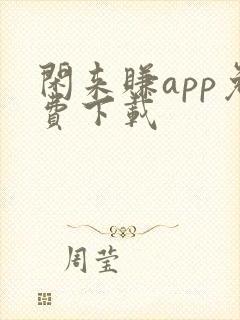 閑来賺app免
費下載
周莹